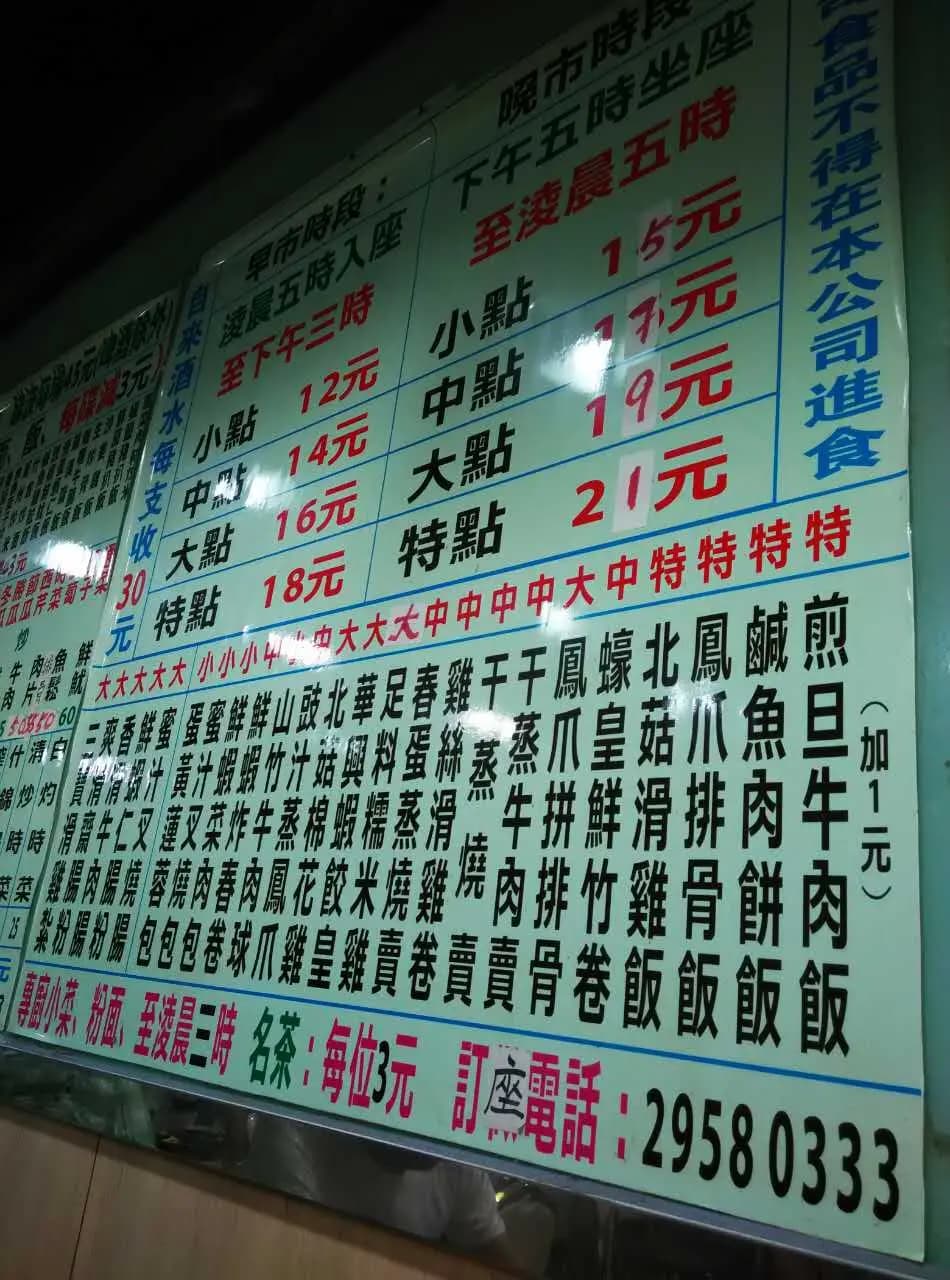 自來酒水每支收30元
早市時段：
淩晨五時入座
至下午三時
小點 12元
中點 14元
大點 16元
特點 18元
晚市時段
下午五時坐座
至淩晨五時
小點 15元
中點 17元
大點 19元
特點 21元
食品不得在本公司進食
大 三寶滑雞紮
大 爽滑齋腸粉
大 香滑牛肉腸
大 鮮蝦仁腸粉
大 蜜汁叉燒腸
小 蛋黃蓮蓉包
小 蜜汁叉燒包
小 鮮蝦菜肉包
中 鮮蝦炸春卷
小 山竹牛肉球
中 豉汁蒸鳳爪
大 北菇棉花雞
大 華興蝦餃皇
大 足料糯米雞
中 春蛋蒸燒賣
中 雞絲滑雞卷
中 干蒸燒賣
中 干蒸牛肉賣
大 鳳爪拼排骨
中 蠔皇鮮竹卷
特 北菇滑雞飯
特 鳳爪排骨飯
特 鹹魚肉餅飯
特 煎旦牛肉飯
（加1元）
專廚小菜、粉面、至淩晨三時 名茶：每位3元 訂座電話：29580333